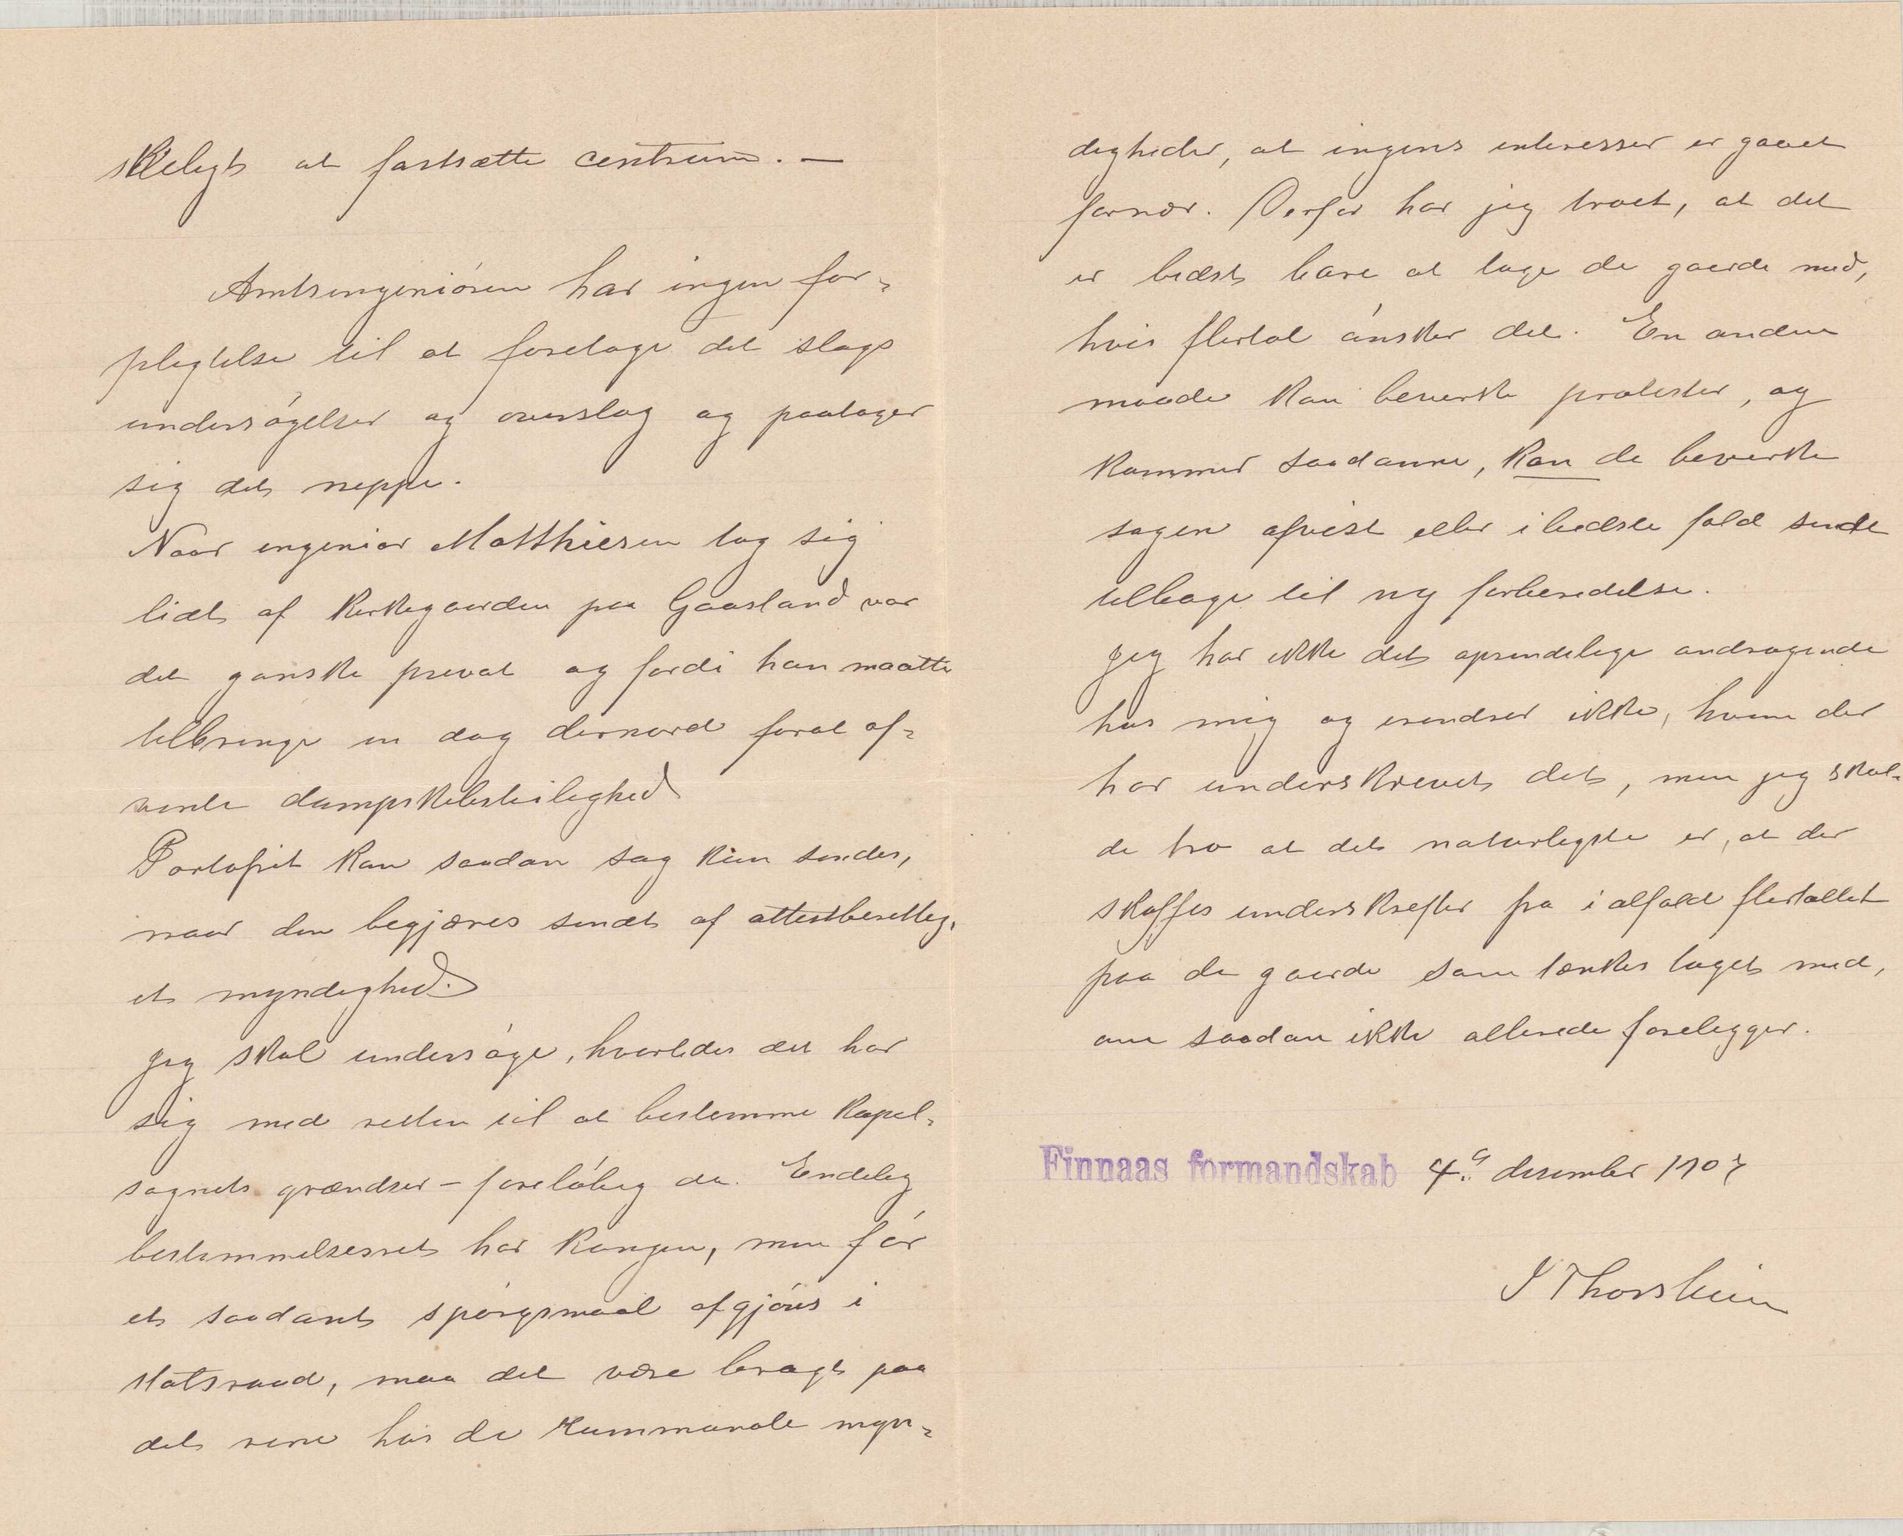 skeligt at fastsætte centrum. —
Amtsingeniören har ingen for-
pligtelse til at foretage det slags
undersögelser og overslag og paatager
sig det neppe.
Naar ingeniör Matthiesen tog sig
lidt af kirkegaarden paa Gaasland var
det ganske privat og fordi han maatte
tilbringe en dag dernord forat af-
vente dampskibsleilighed
Portofrit kan saadan sag kun sendes,
naar den begjæres sendt af attestberettig-
et myndighed.
Jeg skal undersöge, hvorledes det har
sig med retten til at bestemme kapel-
sognets grændser – foreløbig da. Endelig
bestemmelsesret har kongen, men för
et saadant spörgsmaal afgjöres i
statsraad, maa det være bragt paa
det rene hos de kommunale myn-
digheder, at ingens interesser er gaaet
fornær. Derfor har jeg troet, at det
er bedst bare at tage de gaarde med,
hvis flertal önsker det. En anden
maade kan bevirke protester, og
kommer saadanne, kan de bevirke
sagen afvist eller i bedste fald sendt
tilbage til ny forberedelse.
Jeg har ikke det oprindelige andragende
hos mig og erindrer ikke, hvem der
har underskrevet det, men jeg skul-
de tro at det naturligste er, at der
skaffes underskrifter fra i alfald flertallet
paa de gaarde som tænkes taget med,
om saadan ikke allerede foreligger.
Finnaas formandskab 4. desember 1907
J Thorsheim